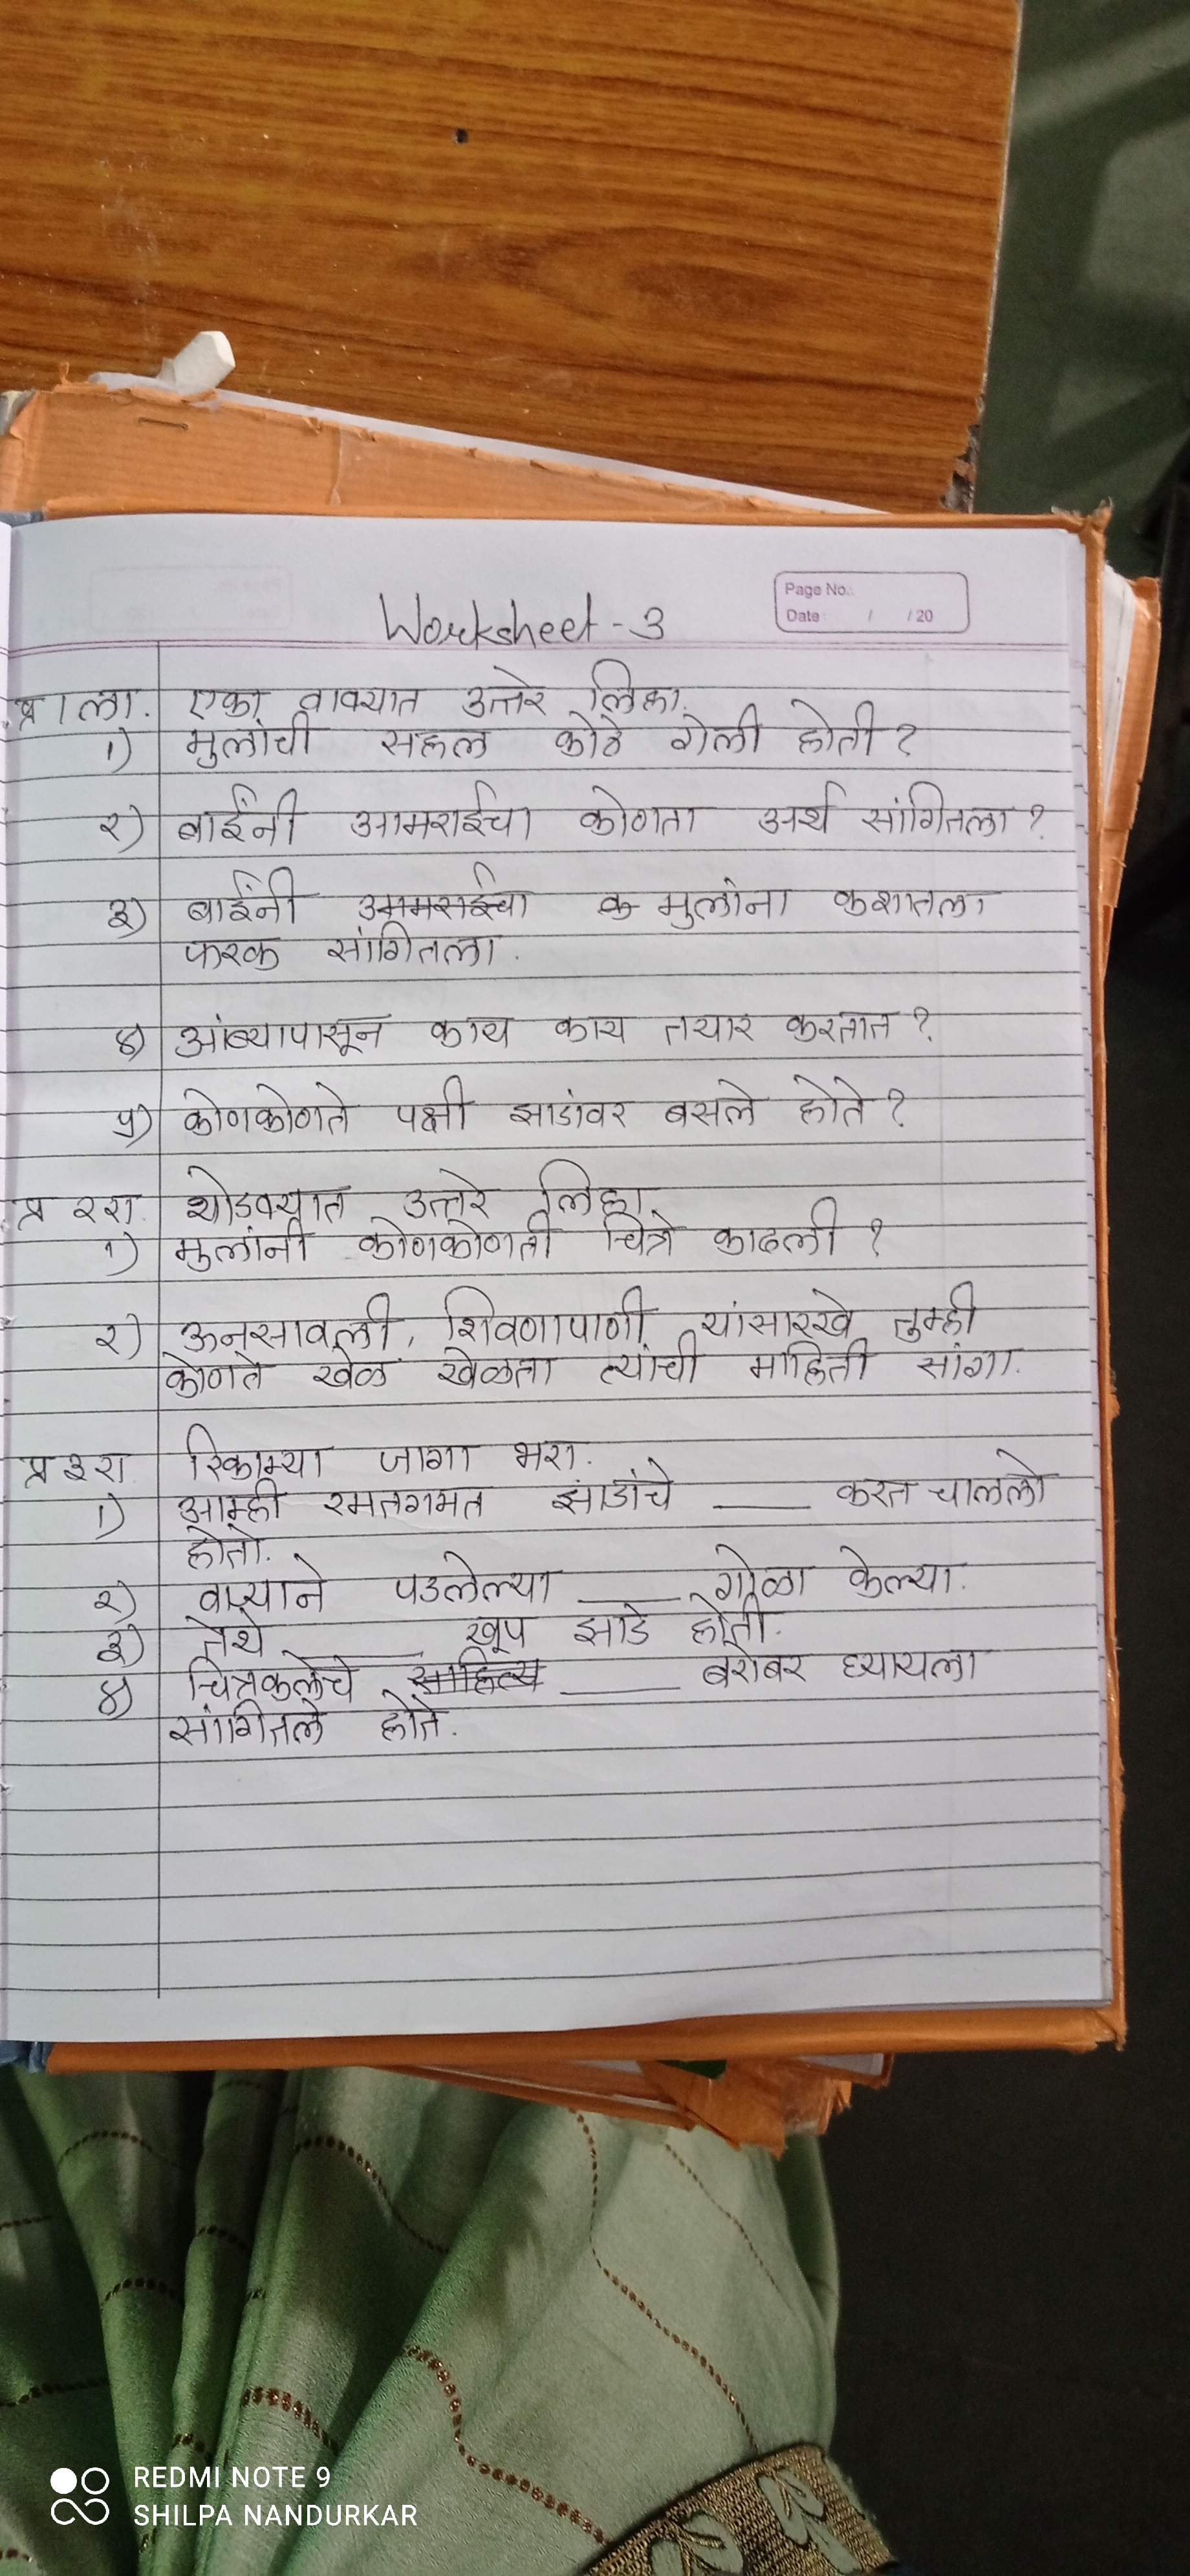 Worksheet - 3
Page No.:
Date: / /20
प्र १ ला. एका वाक्यात उत्तरे लिहा.
१) मुलांची सहल कोठे गेली होती ?
२) बाईंनी आमराईचा कोणता अर्थ सांगितला ?
३) बाईंनी मुलांना कशातला
फरक सांगितला .
४) आंब्यापासून काय काय तयार करतात ?
५) कोणकोणते पक्षी झाडांवर बसले होते ?
प्र २रा. थोडक्यात उत्तरे लिहा.
१) मुलांनी कोणकोणती चित्रे काढली ?
२) ऊनसावली, शिवणापाणी यांसारखे तुम्ही
कोणते खेळ खेळता त्यांची माहिती सांगा.
प्र ३रा रिकाम्या जागा भरा.
१) आम्ही रमतगमत झाडांचे ___ करत चाललो
होतो.
२) वाऱ्याने पडलेल्या ___ गोळा केल्या.
३) तेथे ___ खूप झाडे होती.
४) चित्रकलेचे साहित्य ___ बरोबर घ्यायला
सांगितले होते.
REDMI NOTE 9
SHILPA NANDURKAR